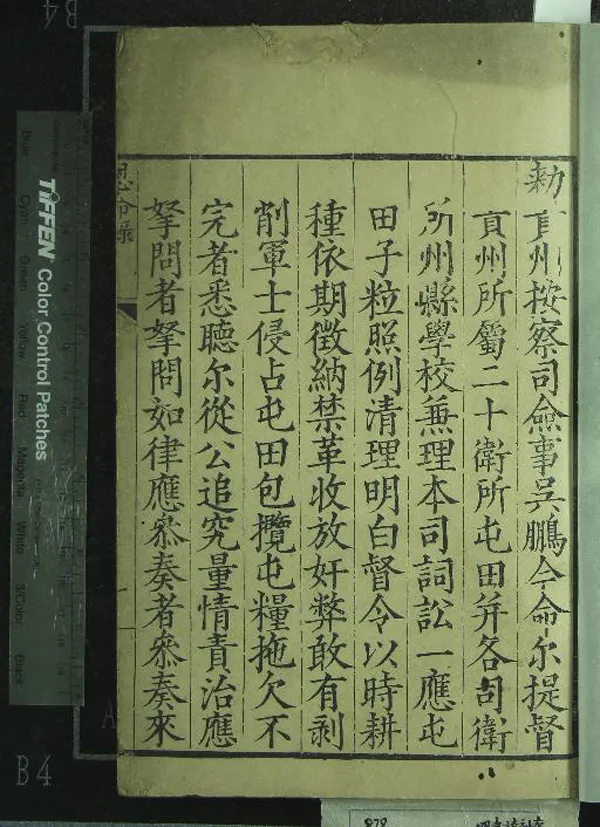 勑貴州按察司僉事吳鵬今命尔提督
貴州所屬二十衛所屯田并各司衛
所州縣學校兼理本司詞訟一應屯
田子粒照例清理明白督令以時耕
種依期徵納禁革收放奸弊敢有剥
削軍士侵占屯田包攬屯糧拖欠不
完者悉聽尔從公追究量情責治應
拏問者拏問如律應叅奏者叅奏來
恩命錄
TIFFEN Color Control Patches
Blue Cyan Green Yellow Red Magenta White 3/Color Black
B4
B4
A